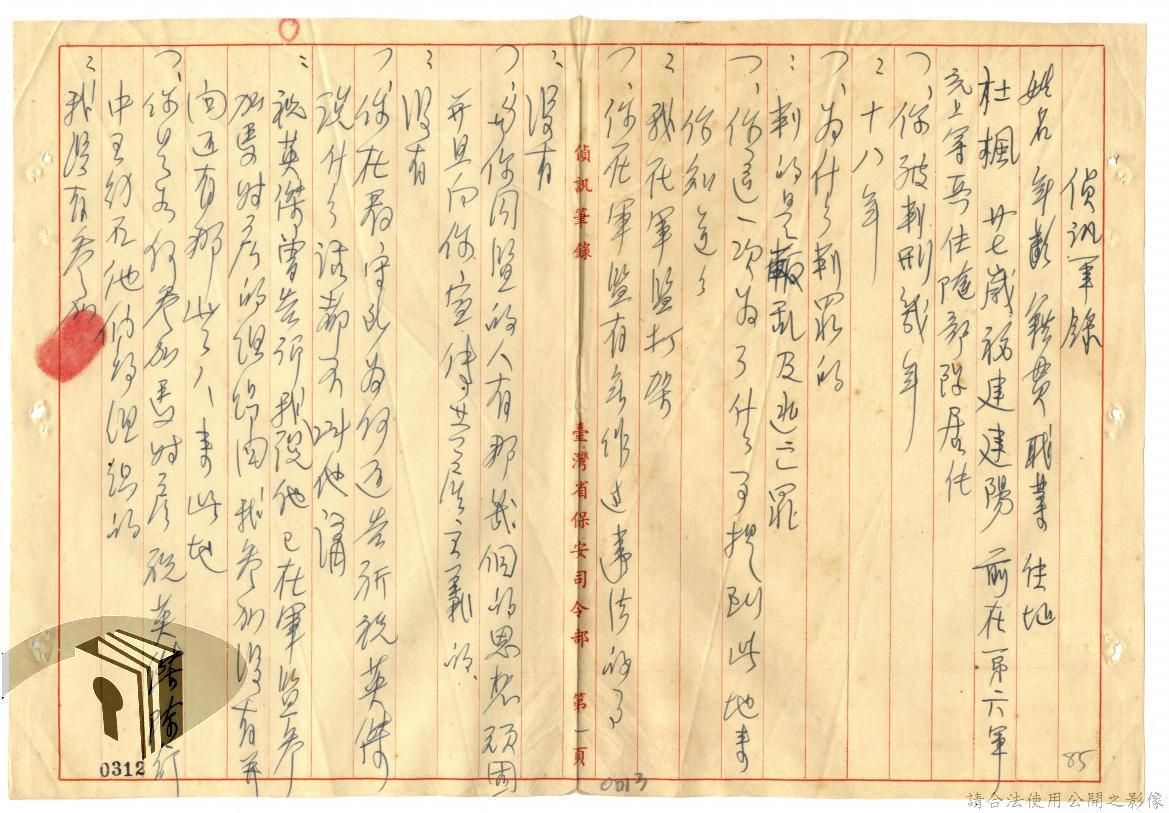 偵訊筆錄
姓名 年齡 籍貫 職業 住址
杜楓 廿七歲 福建建陽 前在第六軍
充上等兵住隨部隊居住
問、你被判刑幾年
答:十八年
問、為什么判罪的
:判的是叛亂及逃亡罪
問、你這一次為了什么事提到此地來
你知道么
:我在軍監打架
問、你在軍監有無作过違法的事
:沒有
問、與你同監的人有那幾個的思想頑固
并且向你宣傳共產主義的
:沒有
問、你在看守所為何近告訴祝英傑
說什么話都不叫他講
:祝英傑曾告訴我說他已在軍監參
加愛时房的組織問我參加沒有并
向还有那些人来此地
你是為何參加愚时房祝英傑陳訢
中王幼石他们的組織的
:我沒有參加
偵訊筆錄 臺灣省保安司令部 第一頁
85
0013
0312
請合法使用公開之影像